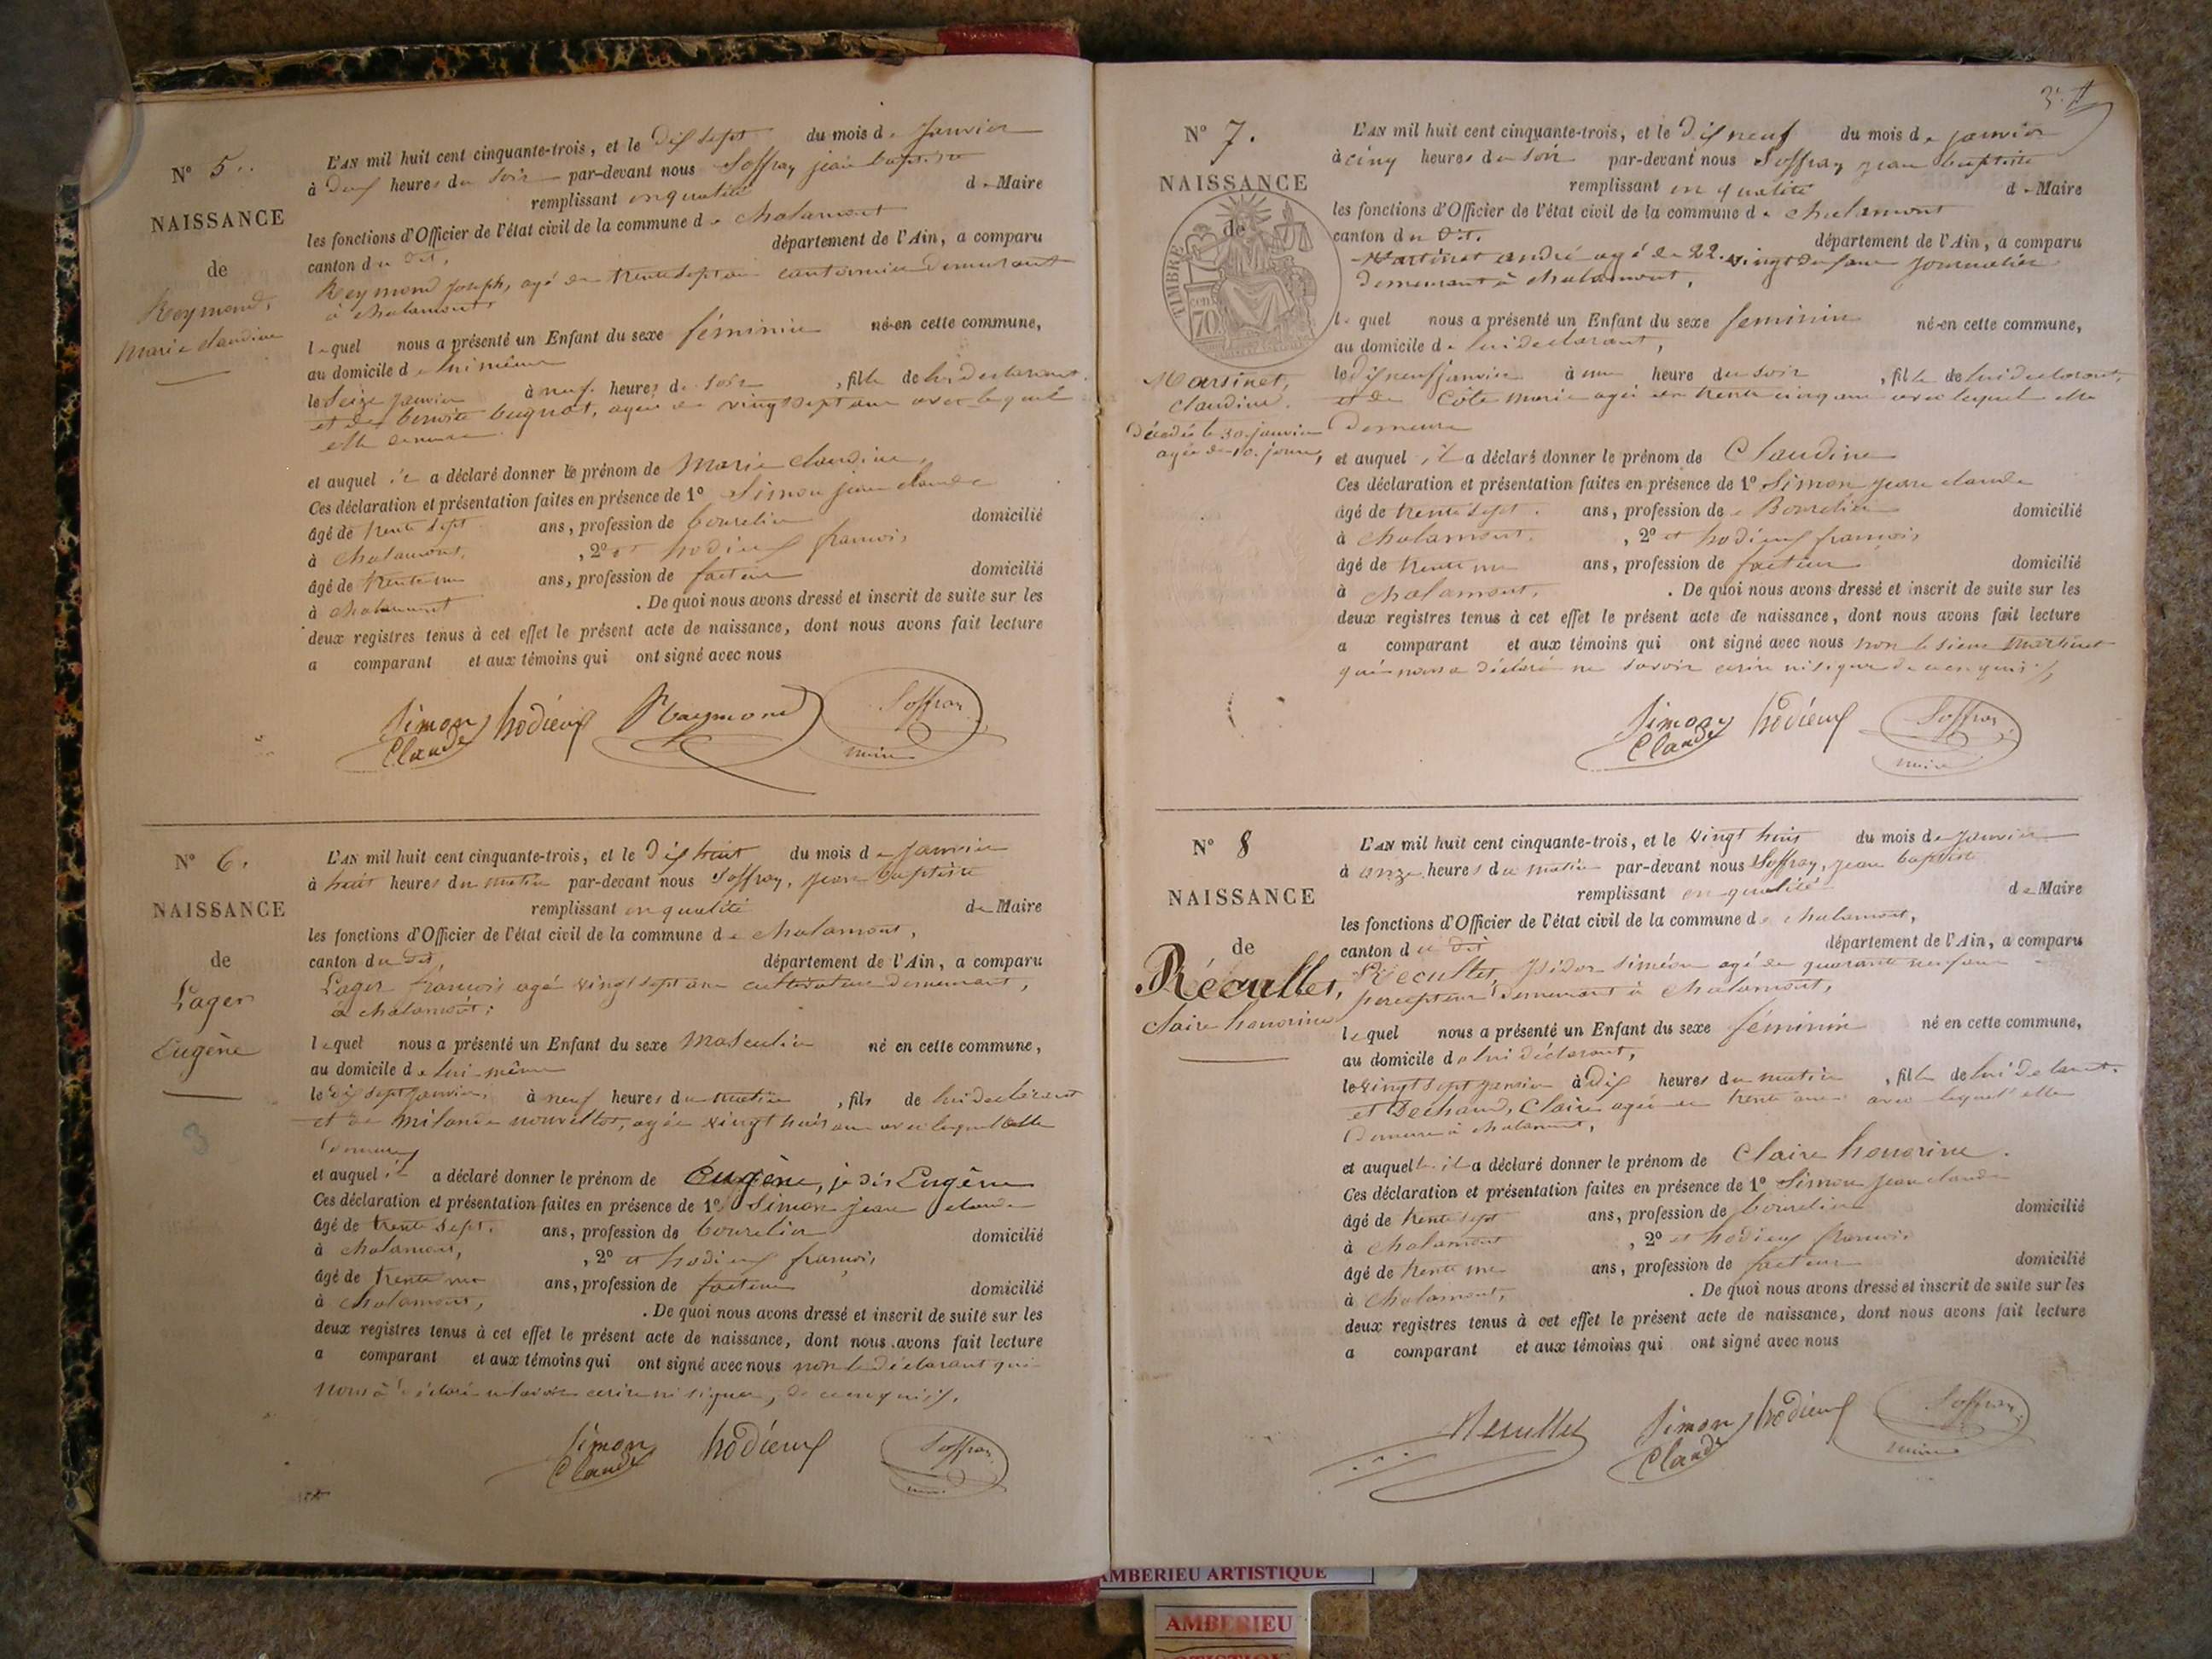 N° 5.
NAISSANCE
de
Reymond,
Marie claudine
L'AN mil huit cent cinquante-trois, et le dix sept du mois de janvier
à deux heures du soir par-devant nous Soffray jean baptiste
remplissant en qualité de Maire
les fonctions d'Officier de l'état civil de la commune de chalamont
canton du dit, département de l'Ain, a comparu
Reymond joseph, agé de trente sept ans cantonnier demeurant
à chalamont,
lequel nous a présenté un Enfant du sexe féminin né en cette commune,
au domicile de lui même
le seize janvier à neuf heures du soir, fille de lui declarant
et de benoite bugnot, agée de vingt sept ans avec lequel
elle demeure
et auquel il a déclaré donner le prénom de Marie claudine,
Ces déclaration et présentation faites en présence de 1° Simon jean claude
âgé de trente sept ans, profession de bourelier domicilié
à chalamont, 2° et hodieux françois
âgé de trente un ans, profession de facteur domicilié
à chalamont. De quoi nous avons dressé et inscrit de suite sur les
deux registres tenus à cet effet le présent acte de naissance, dont nous avons fait lecture
a comparant et aux témoins qui ont signé avec nous
Simon Claude hodieux Raymond Soffray maire
N° 6.
NAISSANCE
de
Lager
Eugène
3
L'AN mil huit cent cinquante-trois, et le dix huit du mois de janvier
à huit heures du matin par-devant nous Soffray, jean baptiste
remplissant en qualité de Maire
les fonctions d'Officier de l'état civil de la commune de chalamont,
canton du dit, département de l'Ain, a comparu
Lager françois agé vingt sept ans cultivateur demeurant,
à chalamont;
lequel nous a présenté un Enfant du sexe Masculin né en cette commune,
au domicile de lui-même
le dix sept janvier, à neuf heures du matin, fils de lui declarant
et de agée vingt huit ans avec lequel elle
demeure
et auquel il a déclaré donner le prénom de Eugène, je dis Eugène
Ces déclaration et présentation faites en présence de 1° Simon jean claude
âgé de trente sept. ans, profession de bourelier domicilié
à chalamont, 2° et hodieux françois,
âgé de trente un ans, profession de facteur domicilié
à chalamont, . De quoi nous avons dressé et inscrit de suite sur les
deux registres tenus à cet effet le présent acte de naissance, dont nous avons fait lecture
a comparant et aux témoins qui ont signé avec nous non le déclarant qui
nous a déclaré ne savoir ecrire ni signer, de ce enquis.
Simon Claude hodieux Soffray
3.
N° 7.
NAISSANCE
de
TIMBRE
70
Marsinet,
claudine.
Décédée le 30 janvier
agée de 10. jours,
L'AN mil huit cent cinquante-trois, et le dix neuf du mois de janvier
à cinq heures du soir par-devant nous Soffray jean baptiste
remplissant en qualité de Maire
les fonctions d'Officier de l'état civil de la commune de chalamont
canton du dit. département de l'Ain, a comparu
andré agé de 22. vingt deux ans journalier
demeurant à chalamont,
lequel nous a présenté un Enfant du sexe feminin né en cette commune,
au domicile de lui declarant,
le dix neuf janvier à une heure du soir, fille de lui declarant,
et de Côte marie agée de trente cinq ans avec lequel elle
demeure
et auquel il a déclaré donner le prénom de Claudine
Ces déclaration et présentation faites en présence de 1° Simon jean claude
âgé de trente sept. ans, profession de Bourelier domicilié
à chalamont. , 2° et hodieux françois,
âgé de trente un ans, profession de facteur domicilié
à chalamont, . De quoi nous avons dressé et inscrit de suite sur les
deux registres tenus à cet effet le présent acte de naissance, dont nous avons fait lecture
a comparant et aux témoins qui ont signé avec nous non le sieur
qui nous a déclaré ne savoir ecrire ni signer de ce enquis
Simon Claude hodieux Soffray maire
N° 8
NAISSANCE
de
Récullet,
claire honorine
L'AN mil huit cent cinquante-trois, et le vingt huit du mois de janvier
à onze heures du matin par-devant nous Soffray, jean baptiste
remplissant en qualité de Maire
les fonctions d'Officier de l'état civil de la commune de chalamont,
canton du dit département de l'Ain, a comparu
Récullet, isidor siméon agé de quarante neuf ans
percepteur demeurant à chalamont,
lequel nous a présenté un Enfant du sexe féminin né en cette commune,
au domicile de lui déclarant,
le vingt sept janvier à dix heures du matin, fille de lui declarant.
et Dechaud, Claire agée de trente ans avec lequel elle
demeure à chalamont,
et auquel il a déclaré donner le prénom de Claire honorine.
Ces déclaration et présentation faites en présence de 1° Simon jean claude
âgé de trente sept ans, profession de bourelier domicilié
à chalamont , 2° et hodieux françois
âgé de trente un ans, profession de facteur domicilié
à chalamont, . De quoi nous avons dressé et inscrit de suite sur les
deux registres tenus à cet effet le présent acte de naissance, dont nous avons fait lecture
a comparant et aux témoins qui ont signé avec nous
Recullet Simon Claude hodieux Soffray maire
AMBERIEU ARTISTIQUE
AMBERIEU
ARTISTIQUE